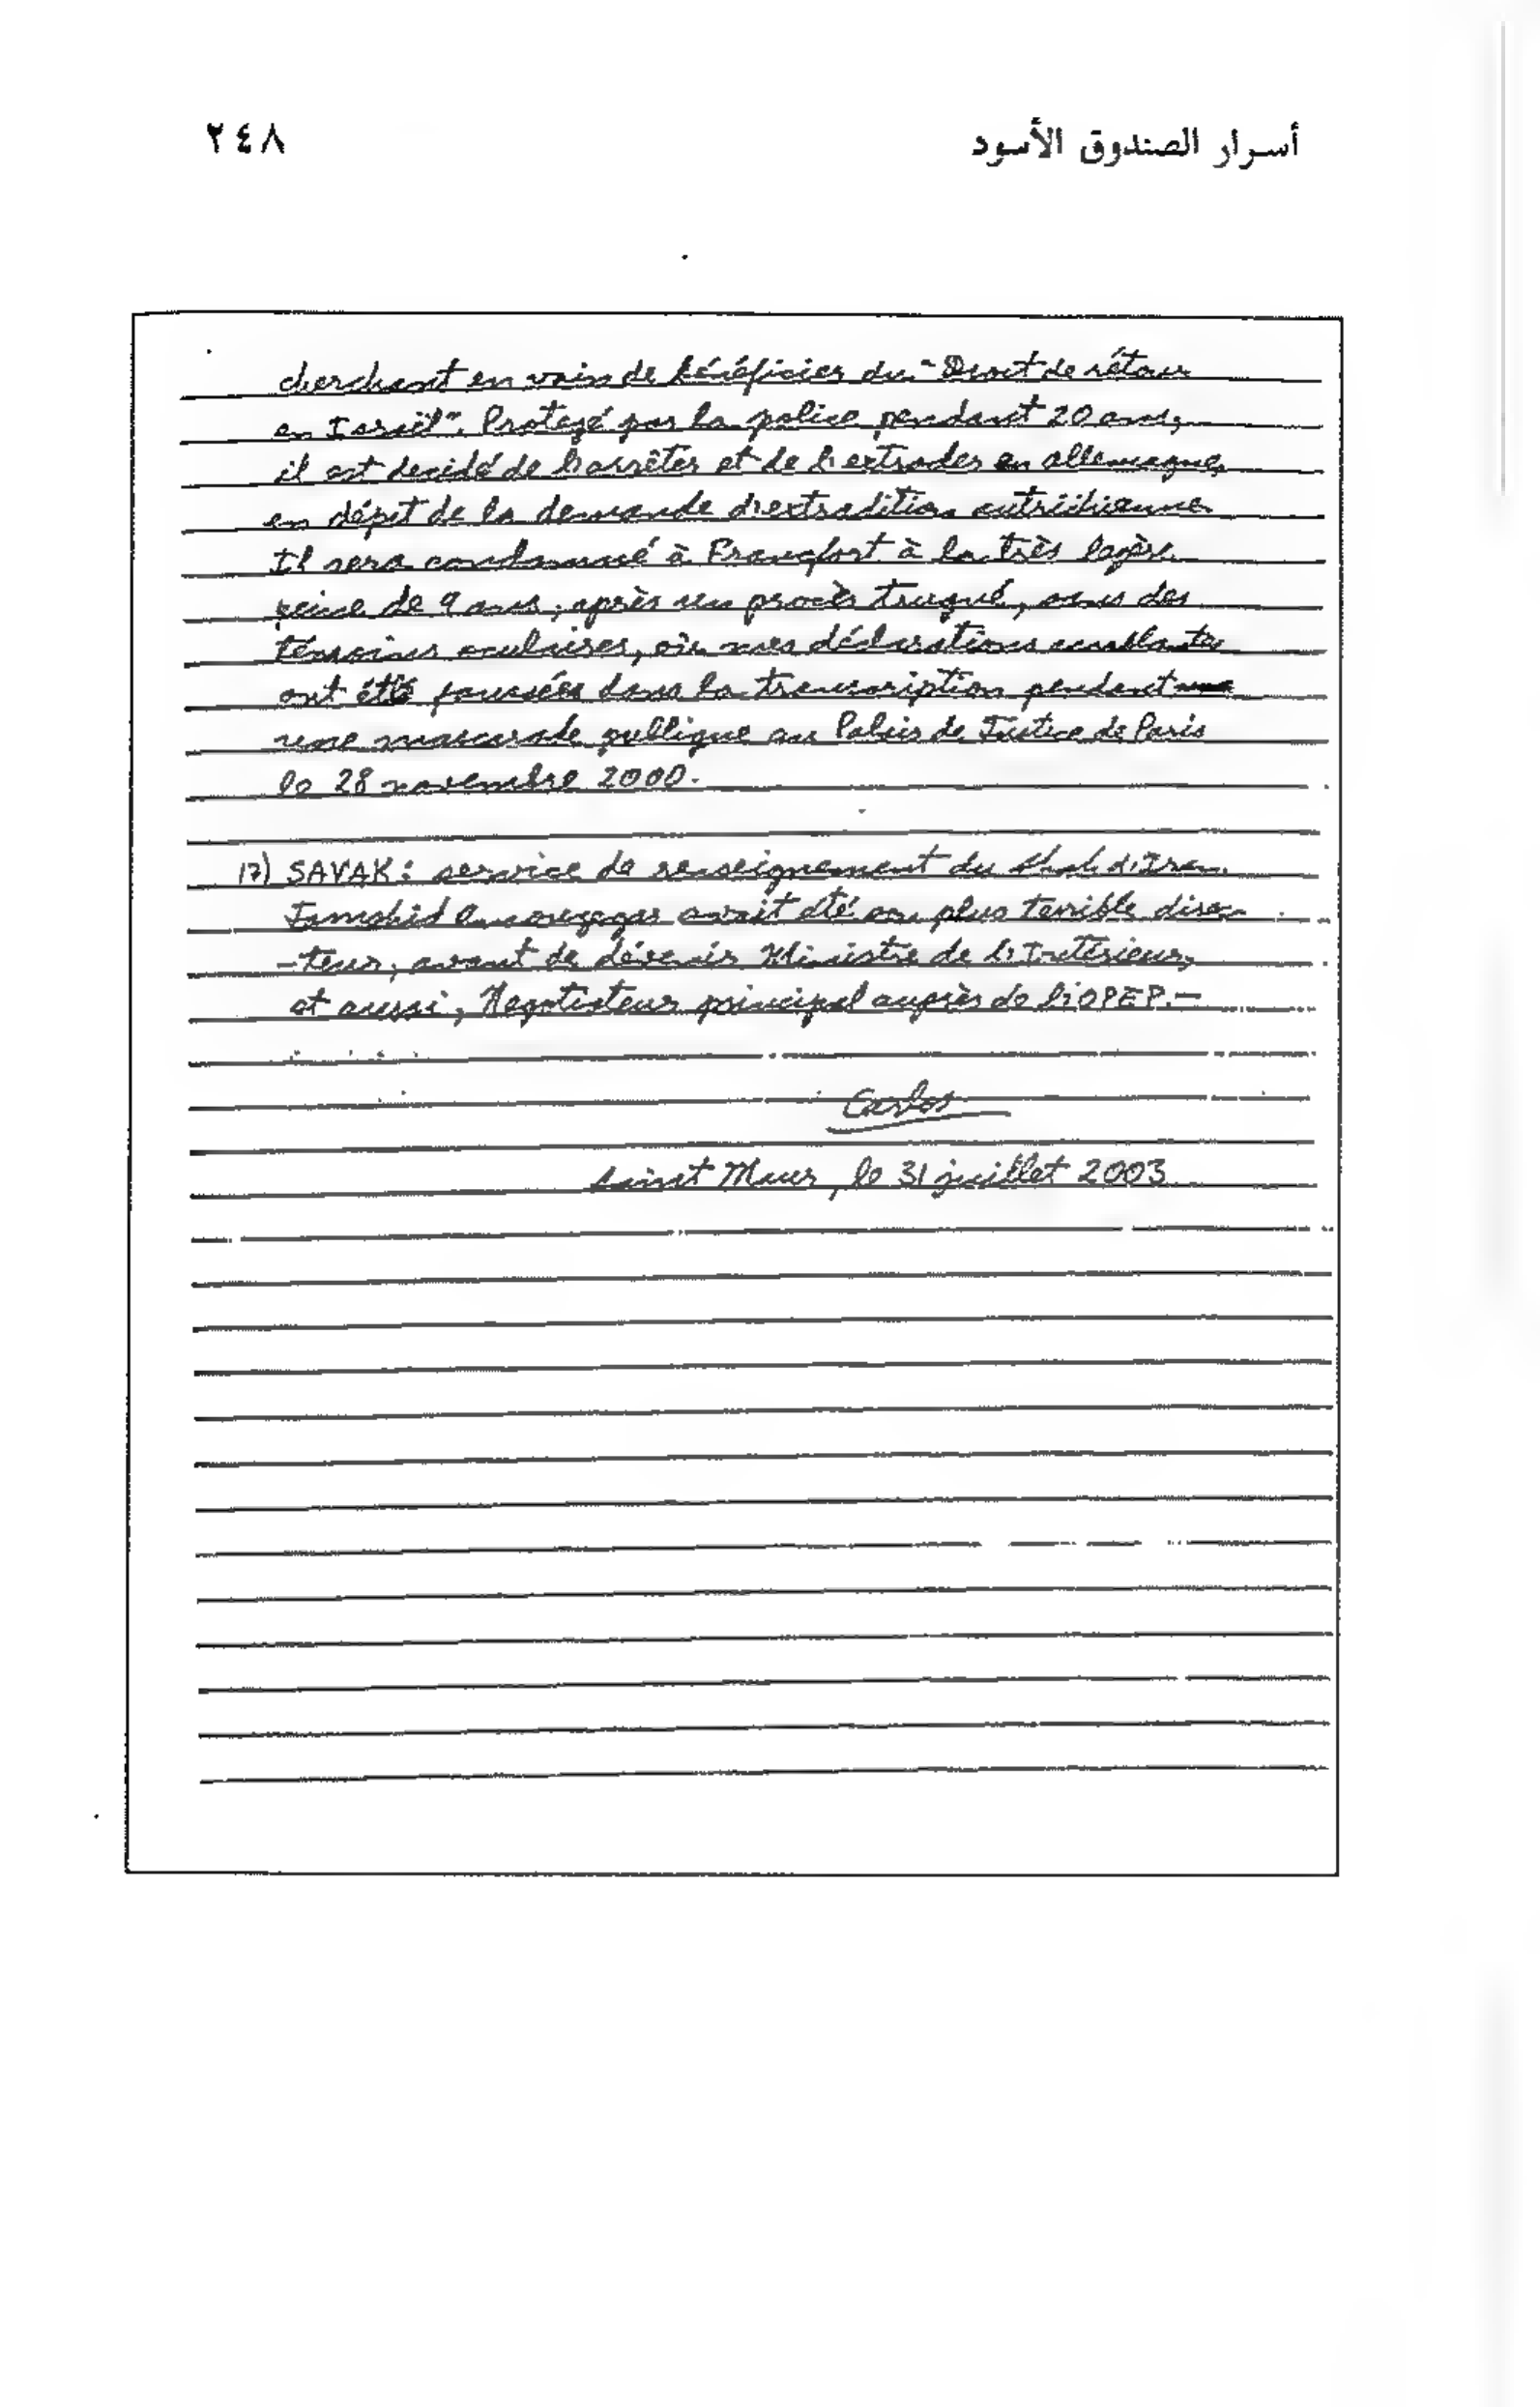 أسرار الصندوق الأسود
٢٤٨
cherchant en vain de bénéficier du "Droit de rétour
en Israël". Protegé par la police pendant 20 ans,
il est decidé de l'arrêter et de l'extrader en allemagne,
en dépit de la demande d'extradition autrichienne
Il sera condamné à Francfort à la très légère
peine de 9 ans, après un procès truqué, sans des
témoins oculaires, où mes déclarations
ont été faussées dans la transcription pendant
une mascarade publique au Palais de Justice de Paris
le 28 novembre 2000.
17) SAVAK: service de renseignement du Shah d'Iran.
Jamshid avait été son plus terrible direc
-teur, avant de dévenir Ministre de l'Intérieur,
et aussi, Negotiateur principal auprès de l'OPEP.-
Carlos
Saint Maur, le 31 juillet 2003